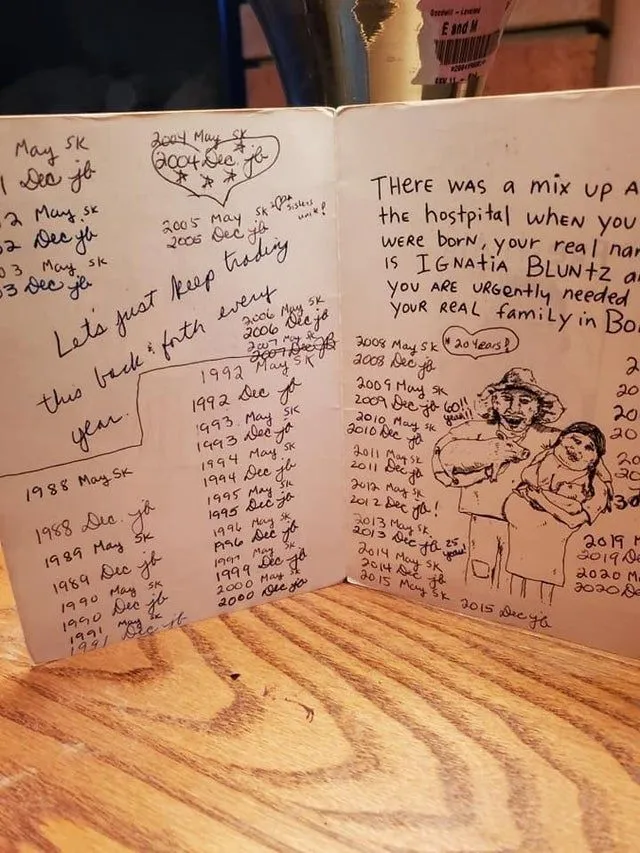 Goodwill - Loveland
E and M
May SK
1 Dec jb
2 May SK
02 Dec jb
03 May SK
03 Dec jb
2004 May SK
2004 Dec jb
2005 May SK sisters
unite!
2005 Dec jb
Let's just keep trading
this back & forth every
year.
2006 May SK
2006 Dec jb
2007 May SK
2007 Dec jb
1988 May SK
1988 Dec. jb
1989 May SK
1989 Dec jb
1990 May SK
1990 Dec jb
1991 May SK
1991 Dec jb
1992 May SK
1992 Dec jb
1993 May SK
1993 Dec jb
1994 May SK
1994 Dec jb
1995 May SK
1995 Dec jb
1996 May SK
1996 Dec jb
May SK
1999 Dec jb
2000 May SK
2000 Dec jb
THERE WAS a MIX UP A
the hostpital WHEN YOU
WERE born, your real nam
IS IGNatia BLUNTZ a
YOU ARE URGENtly needed
YOUR REAL family in Bo
2008 May SK
20 years!
2008 Dec jb
2009 May SK
2009 Dec jb 60!!
2010 May SK
2010 Dec jb
2011 May SK
2011 Dec jb
2012 May SK
2012 Dec jb!
2013 May SK
2013 Dec jb 25
years!
2014 May SK
2014 Dec jb
2015 May SK
2015 Dec jb
2
20
20
20
20
2019 M
2019 De
2020 M
2020 De